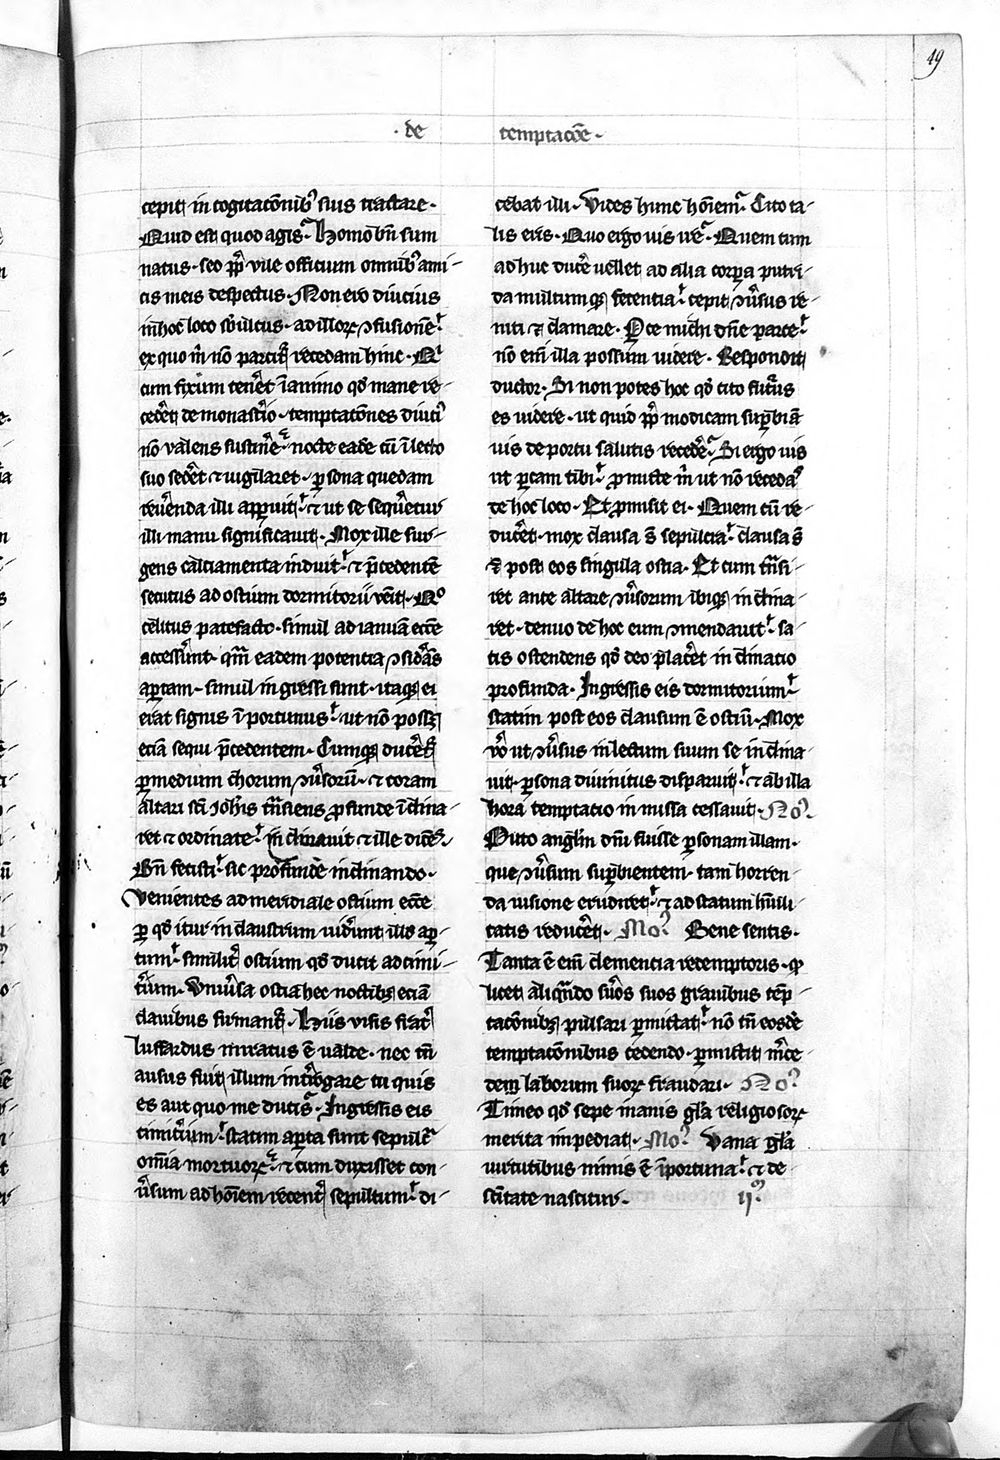 49
· de temptac̄oe ·
cepit in cogitac̄onib᷒ suis tractare ·
Quid est quod agis · Homo bn̄ sum
natus · sed pp̄ vile officium omnib᷒ ami-
cis meis despectus · Non ero diucius
in hoc loco sb̓ultus · ad illoꝝ ɔfusionē
ex quo m̄ nō parcit᷒ recedam hinc · Qͥ
cum fixum tenet̓ ī animo qd̓ mane re-
cedet̓ de monast̓io · temptac̄ones diuci᷒
nō valens sustin̓e · nocte eadē cū ī lecto
suo sedet̓ ⁊ uigilaret · ꝑsona quedam
reu̓enda illi apparuit · ⁊ ut se sequet̓ur
illi manu significauit · Mox ille sur-
gens calciamenta induit · ⁊ p̄cedentē
secutus ad ostium dormitorii venit · Qͦ
celitus patefacto · simul ad ianuā eccē
access̓unt · qm̄ eadem potentia ɔsid̓ās
aꝑtam · simul ingressi sunt · itaqꝫ ei
erat signis īportunus · ut nō possꝫ
eciā sequi p̄cedentem · Cumqꝫ ducet̓ᷣ
ꝑ medium chorum ɔu̓sorū · ⁊ coram
altari sci̅ Joh̓is tn̄siens ꝓfunde īclina-
ret ⁊ ordinate · inclinauit ⁊ ille dicēs ·
Bn̄ fecisti · sic profunde inclinando ·
Venientes ad meridiale ostium eccē
ꝑ qd̓ itur in claustrum uid̓unt illd̓ aꝑ-
tum · similit̓ ostium qd̓ ducit ad cimi-
t̓ium · Vniu̓sa ostia hec noctibꝫ eciā
clauibus firmant᷒ · Hiis visis frat̓
luffardus miratus ē ualde · nec tn̄
ausus fuit illum int̓rogare tu quis
es aut quo me ducis · Ingressis eis
cimit̓ium · statim aꝑta sunt sepulcͣ
om̄ia mortuoꝝ · ⁊ cum duxisset con-
u̓sum ad hoīem recent̓ sepultum · di-
cebat illi · Vides hunc hoīem · Cito ta-
lis eris · Quo ergo uis ire · Quem cum
adhuc ducē uellet ad alia corꝑa putri-
da multumqꝫ fetentia · cepit ɔu̓sus re-
niti ⁊ clamare · Parce michi dn̄e parce ·
nō eni̅ illa possum videre · Respondit
ductor · Si non potes hoc qd̓ cito futurus
es uidere · ut quid pp̄ modicam suꝑbiā
uis de portu salutis recede̓ · Si ergo uis
ut ꝑcam tibi · ꝓmitte m̄ ut nō recedas
de hoc loco · Et ꝓmisit ei · Quem cū re-
ducet̓ · mox clausa s̄ sepulcra · clausa s̄
⁊ post eos singula ostia · Et cum tn̄si-
ret ante altare ɔu̓sorum ibiqꝫ inclina-
ret · denuo de hoc eum ɔmendauit · sa-
tis ostendens qd̓ deo placet̓ inclinatio
profunda · Ingressis eis dormitorium ·
statim post eos clausum ē ostiū · Mox
v̓o ut ɔu̓sus in lectum suum se inclina-
uit · ꝑsona diuinitus disparuit · ⁊ ab illa
hora temptacio in missa cessauit · No᷒
Puto angl̄m dn̄i fuisse ꝑsonam illam ·
que ɔu̓sum suꝑbientem · tam horren-
da uisione erudiret · ⁊ ad statum humili-
tatis reducet̓ · Mo᷒ Bene sentis ·
Tanta ē eni̅ clemencia redemptoris · qꝫ
licet aliquando su̓os suos grauibus tēp-
tac̄onibꝫ pulsari ꝑmittat · nō tn̄ eosdē
temptac̄onibus cedendo · ꝑmittit m̓ce-
dem laborum suoꝝ fraudari · No᷒
Timeo qd̓ sepe inanis gl̄a religiosoꝝ
merita impediat · Mo᷒ Vana gl̄a
uirtutibus nimis ē īportuna · ⁊ de
sc̄itate nascitur ·
ij᷒